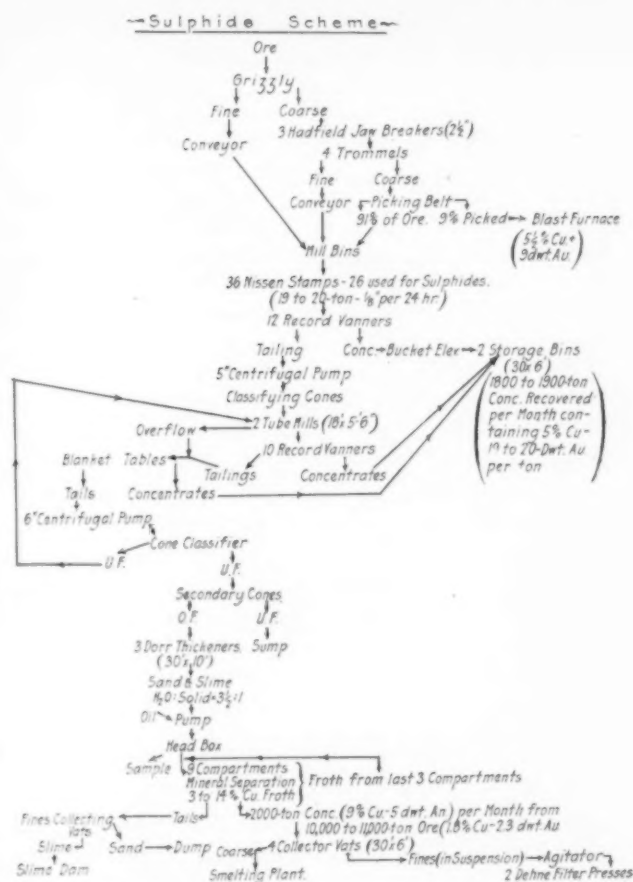 Sulphide Scheme
Ore
Grizzly
Fine Coarse
3 Hadfield Jaw Breakers (2½")
Conveyor
4 Trommels
Fine Coarse
Conveyor Picking Belt
91% of Ore. 9% Picked Blast Furnace
(5½% Cu.+
9 dwt. Au.)
Mill Bins
36 Nissen Stamps - 26 used for Sulphides.
(19 to 20-ton - ⅛" per 24 hr.)
12 Record Vanners
Tailing Conc. Bucket Elev 2 Storage Bins
(30 x 6')
5" Centrifugal Pump
Classifying Cones
(1800 to 1900-ton
Conc. Recovered
per Month con-
taining 5% Cu-
19 to 20-Dwt. Au
per ton)
2 Tube Mills (18'x 5'6")
Overflow
10 Record Vanners
Blanket Tables
Tailings Concentrates
Tails Concentrates
6" Centrifugal Pump
Cone Classifier
U.F.
U.F.
Secondary Cones
O.F. U.F.
3 Dorr Thickeners. Sump
(30'x 10')
Sand & Slime
H₂O: Solid = 3½:1
Oil Pump
Head Box
Sample 9 Compartments
Mineral Separation
3 to 14% Cu. Froth
Froth from last 3 Compartments
Tails 2000-ton Conc. (9% Cu-5 dwt. An) per Month from
10,000 to 11,000 ton Ore (1.8% Cu-2.3 dwt. Au
Fines Collecting
Vats
Slime Sand Dump Coarse 4 Collector Vats (30'x 6')
Slime Dam
Smelting Plant.
Fines (in Suspension) Agitator
2 Dehne Filter Presses